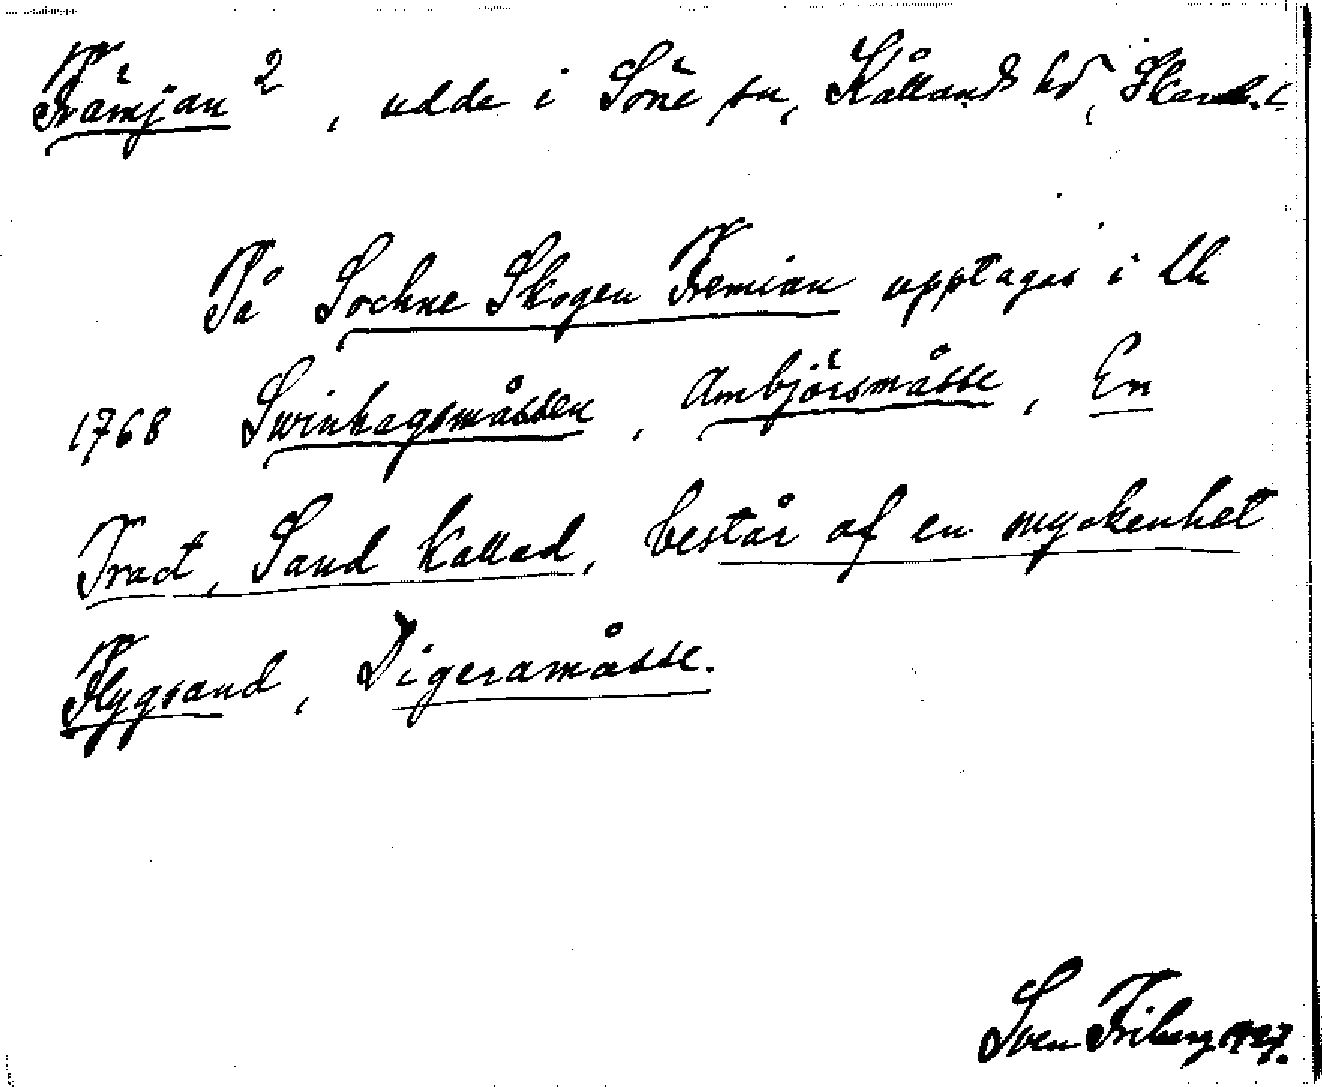 Främjan 2, udde i Söne sn, Kållands hd, Skarab. l.
På Sockne Skogen Fremian upptages i Lk
1768 Swinhagsmåssen, Ambjörsmåsse, En
Tract, Sand kallad, består af en myckenhet
Flygsand, Digeramåsse.
Sven Friberg 1927.